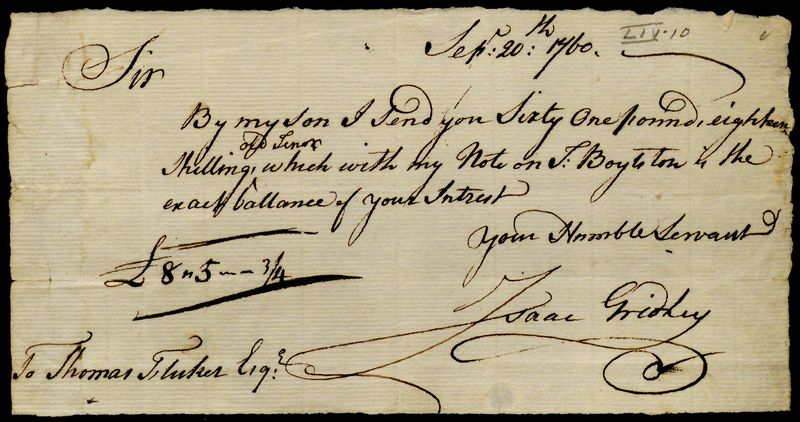 Sepr: 20:th 1760.
LIV.10
Sir
By my son I Send you Sixty One pound, eighteen
old Tenor
Shilling, which with my Note on T: Boylston is the
exact ballance of your Intrest
Your Humble Servant
£8"5"-3/4
Isaac Gridley
To Thomas Fluker Esqr: